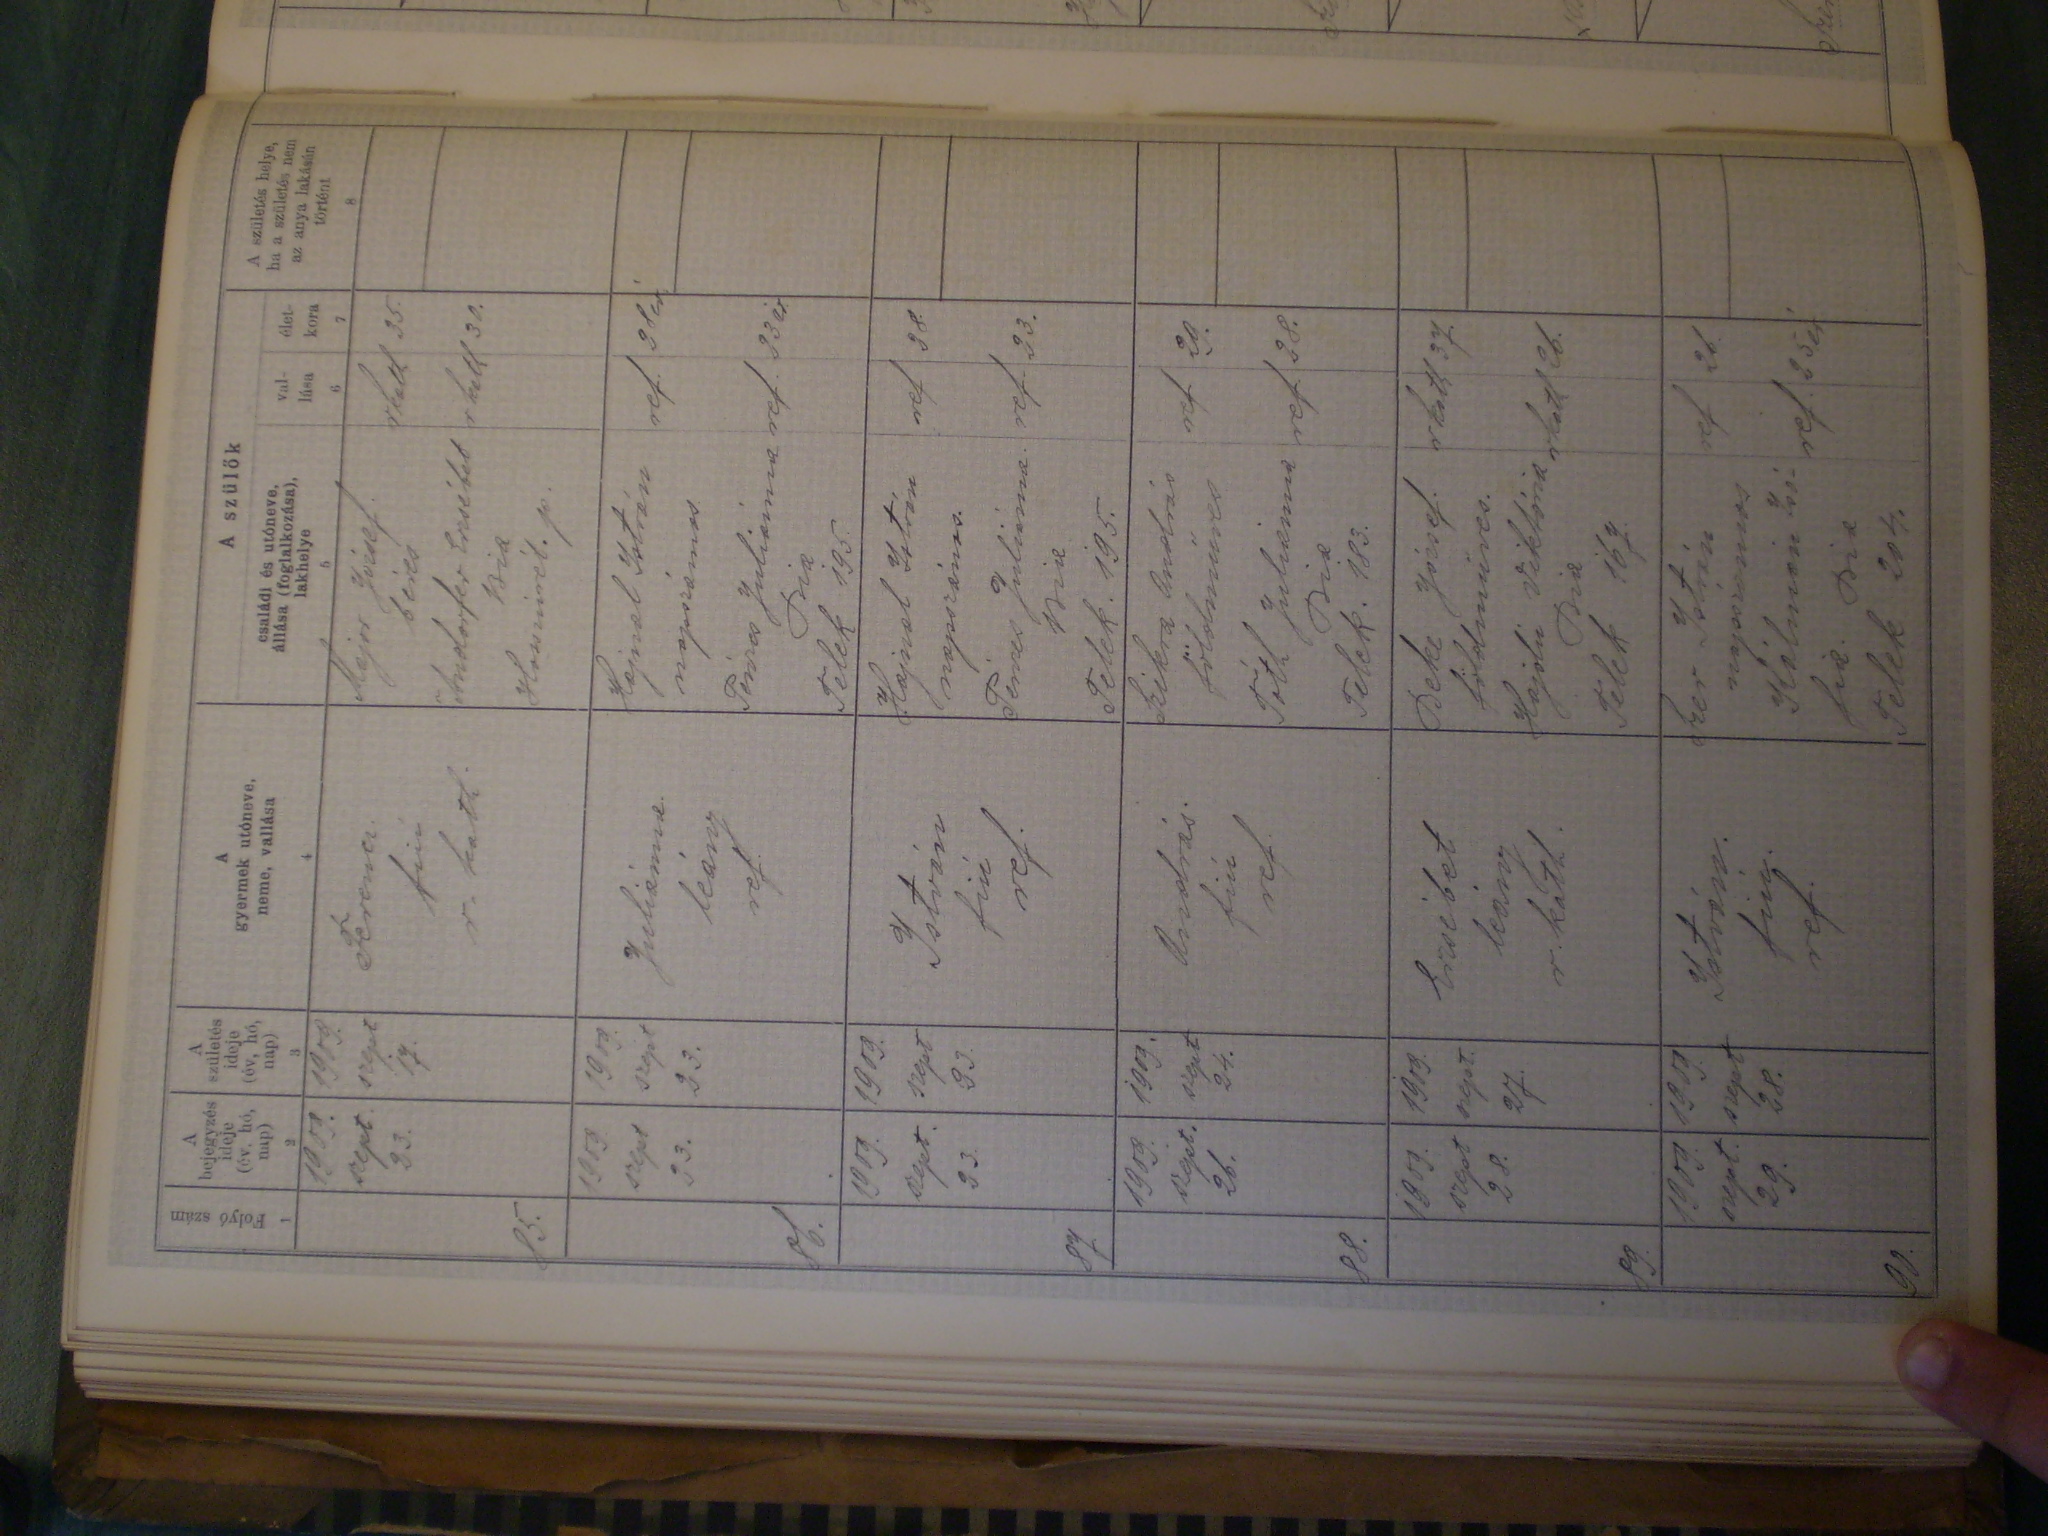 Folyó szám
1
A
bejegyzés
ideje
(év, hó,
nap)
2
A
születés
ideje
(év, hó,
nap)
3
A
gyermek utóneve,
neme, vallása
4
A szülők
családi és utóneve,
állása (foglalkozása),
lakhelye
5
val-
lása
6
élet-
kora
7
A születés helye,
ha a születés nem
az anya lakásán
történt
8
85.
1909.
szept.
23.
1909.
szept
17.
Ferencz.
fiú
r. kath.
Major József.
béres
Erzsébet
Bia
r kath 35.
r kath 30.
86.
1909
szept
23.
1909.
szept
23.
Juliánna.
leány
ref.
Hajnal István
napszámos
Juliánna
Bia
Telek 195.
ref.
ref.
87
1909.
szept.
23.
1909.
szept
23.
István
fiú
ref.
Hajnal István
napszámos.
Juliánna.
Bia
Telek. 195.
ref
ref.
88.
1909.
szept.
26.
1909.
szept
24.
András.
fiú
ref.
András
földműves
Tóth Julianna
Bia
Telek. 183.
ref 29.
ref 28.
89.
1909.
szept
28.
1909.
szept.
27.
Erzsébet
leány
r. kath.
Beke József.
földműves.
Viktória
Bia
Telek 167.
r kath 37.
r kath 26.
90.
1909.
szept.
29.
1909
szept
28.
István.
fiú.
ref.
István
napszámos
Kálmán Zsó-
fia. Bia
Telek 204.
ref 26.
ref. 25 év